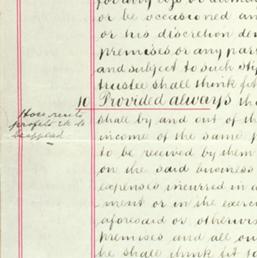 for any
or be occasioned an
or his discretion de
premises or any par
and subject to such sti
trustee shall think fit
11 Provided always tha
How rents
profits &c to
be applied
shall by and out of th
income of the same p
to be received by them
on the said business
expenses incurred in
ment or in the exerci
aforesaid or otherwi
premises and all ou
he shall think fit to